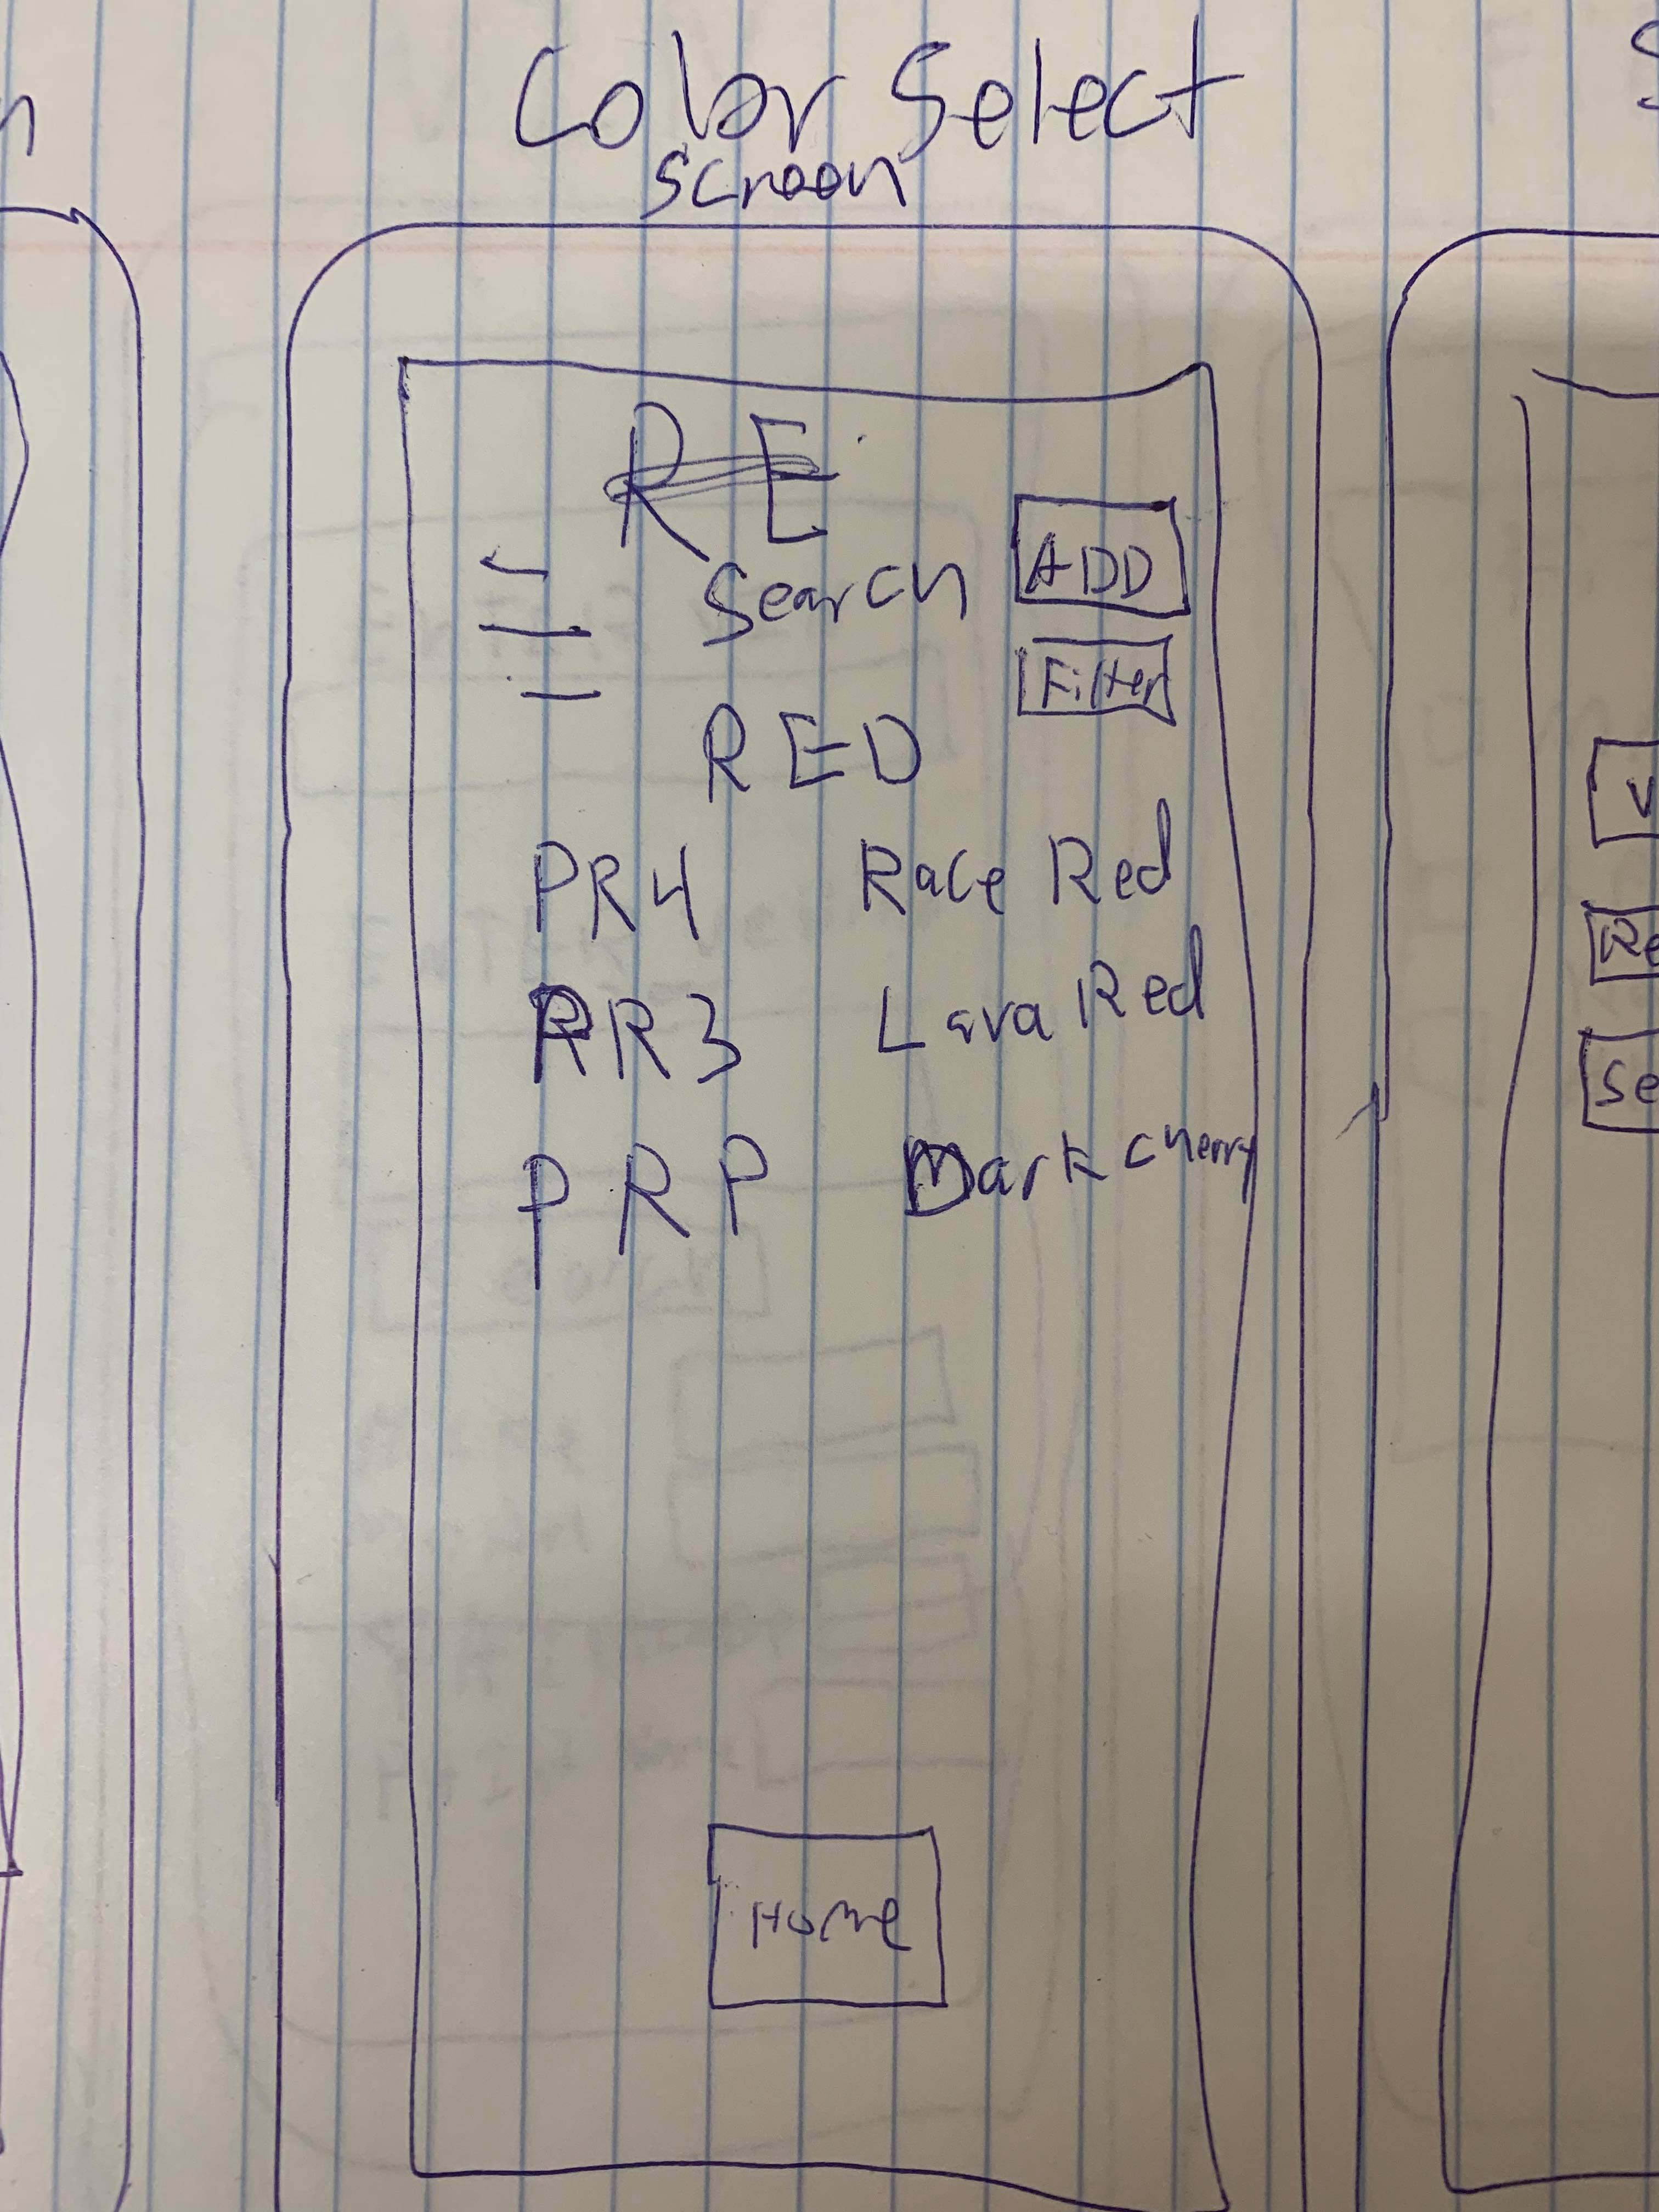 Color Select
screen
RE
Search
ADD
Filter
RED
PR4 Race Red
RR3 Lava Red
PRP Dark cherry
Home